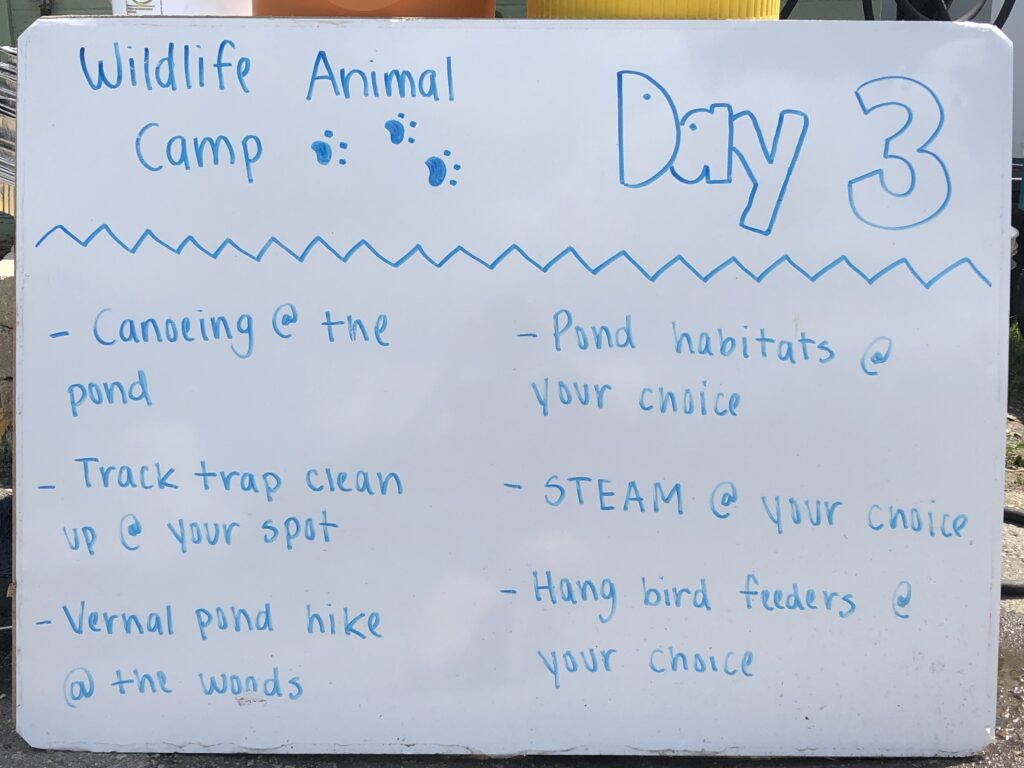 Wildlife Animal
Camp
Day 3
- Canoeing @ the
pond
- Track trap clean
up @ your spot
- Vernal pond hike
@ the woods
- Pond habitats @
your choice
- STEAM @ your choice
- Hang bird feeders @
your choice